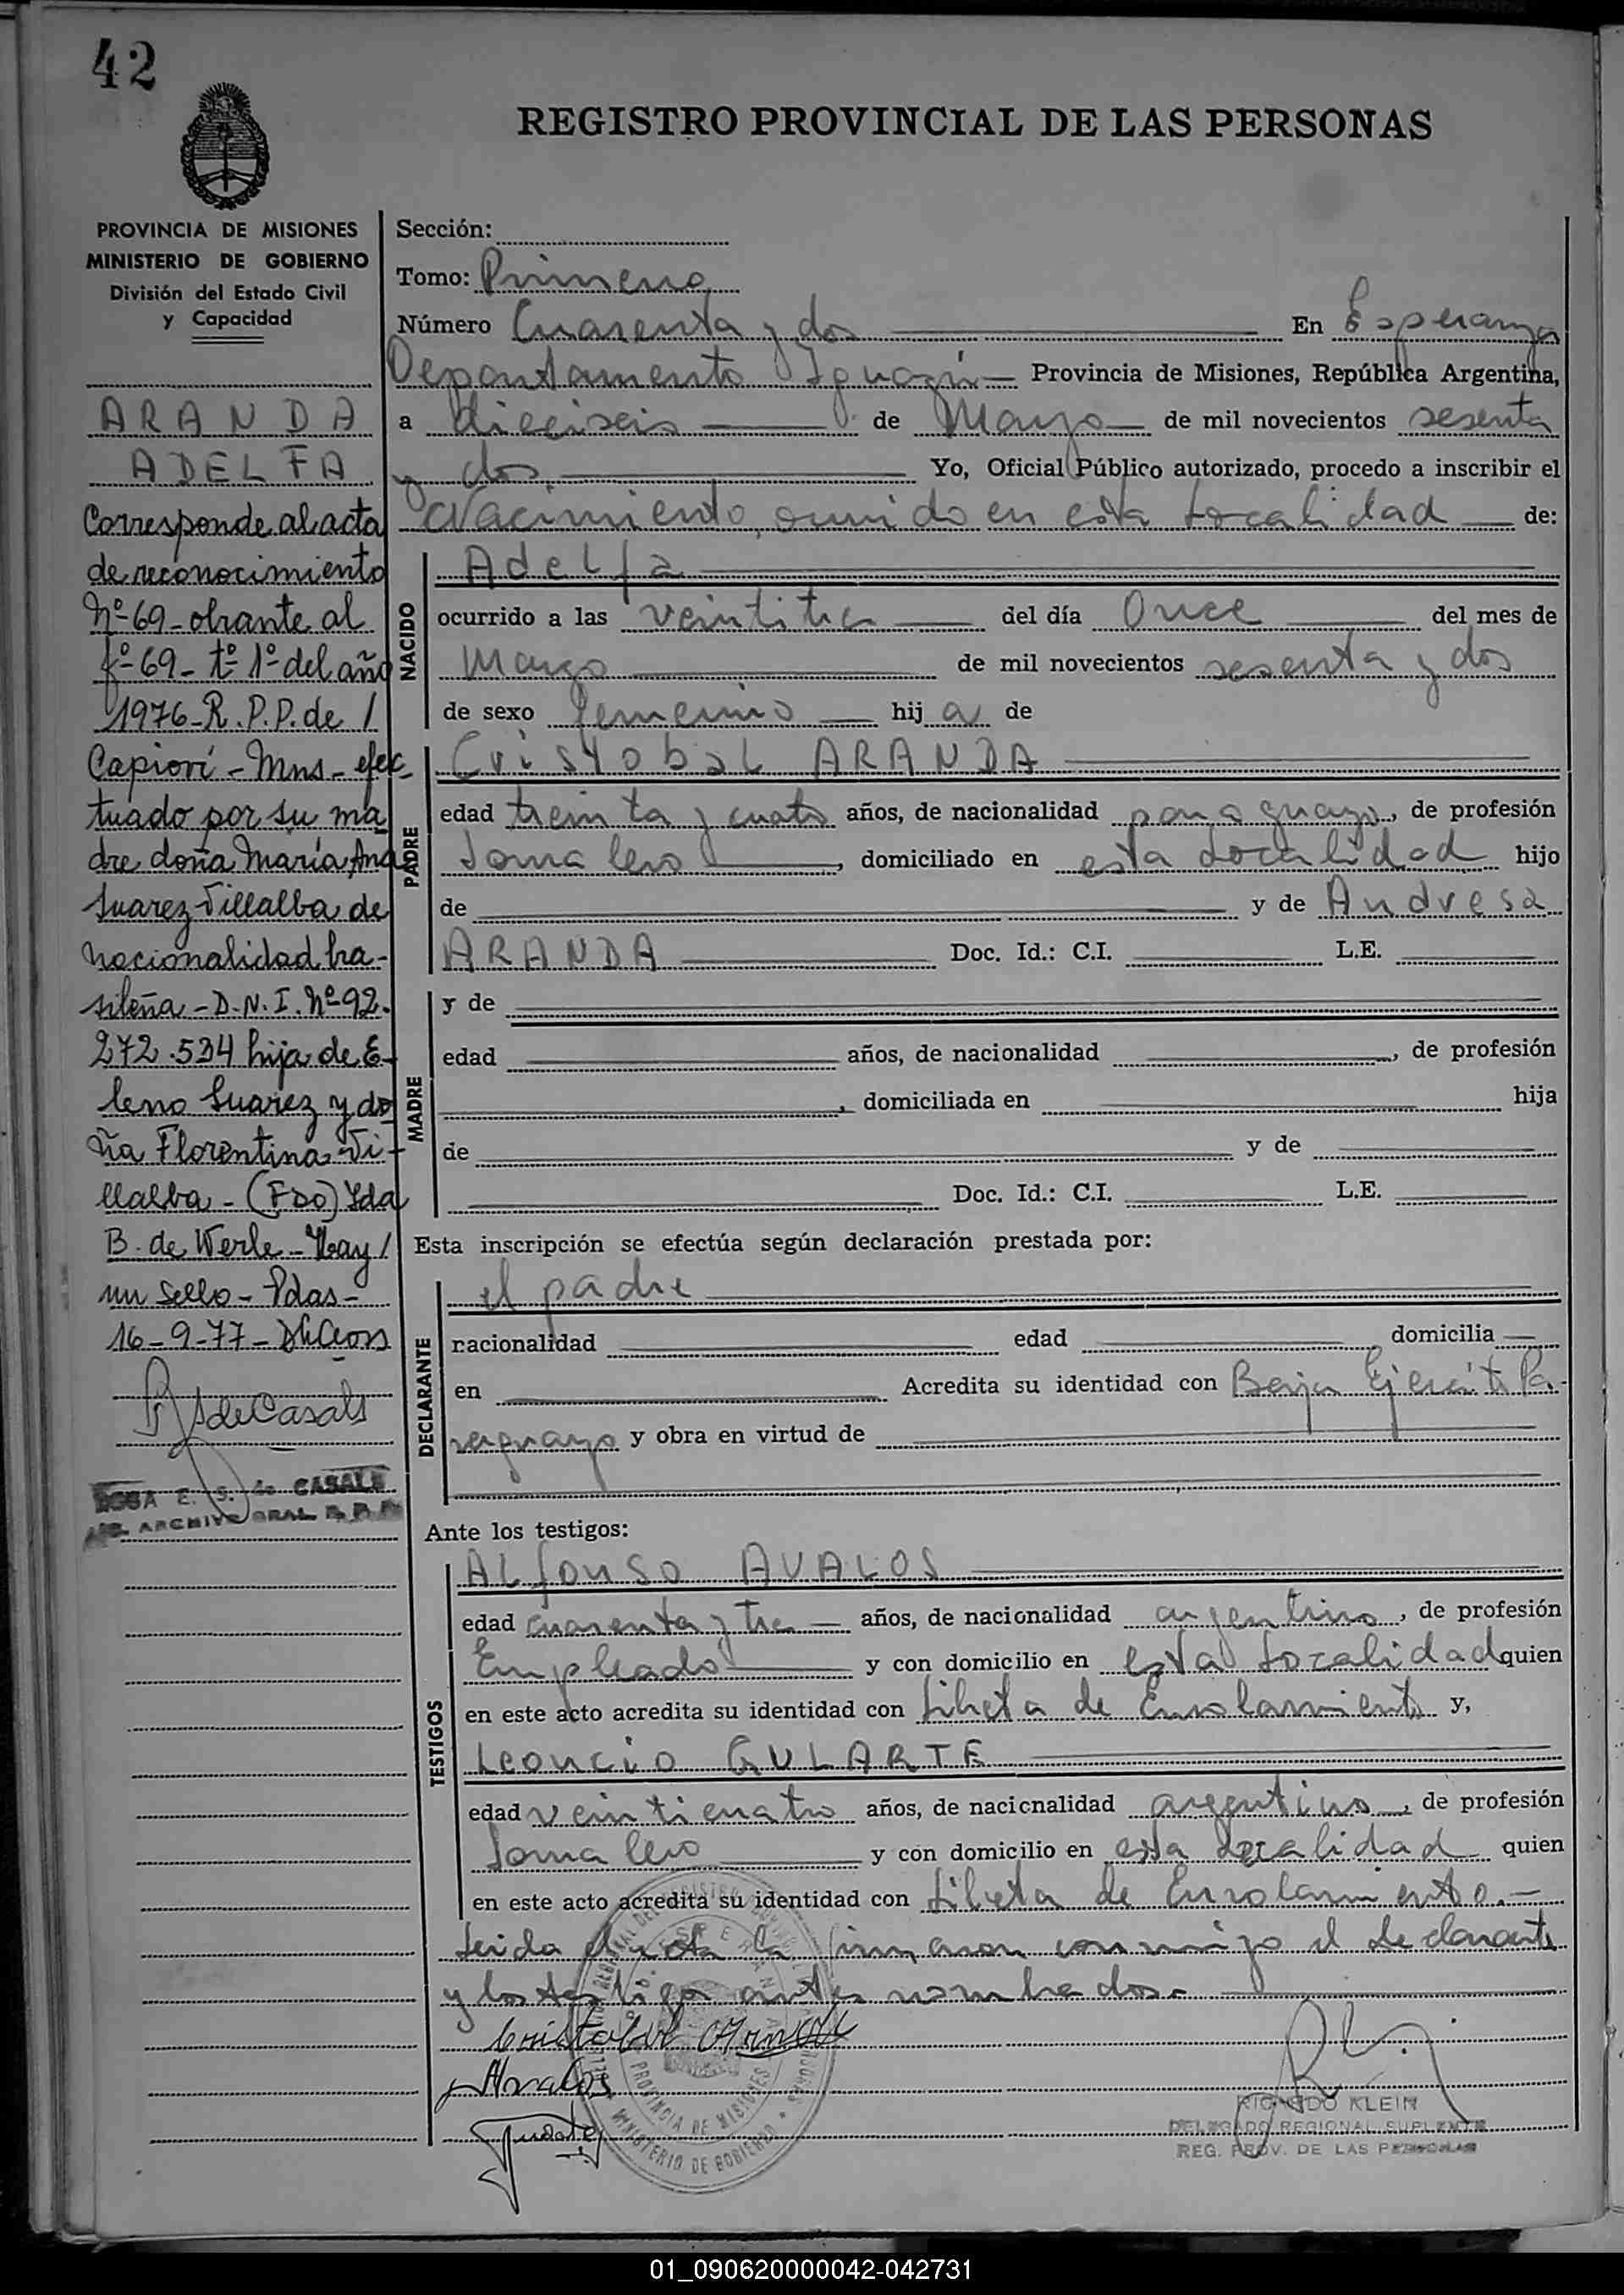 42
REGISTRO PROVINCIAL DE LAS PERSONAS
PROVINCIA DE MISIONES
MINISTERIO DE GOBIERNO
División del Estado Civil
y Capacidad
ARANDA
ADELFA
Corresponde al acta
de reconocimiento
Nº 69 - obrante al
fº 69 - tº 1º del año
1976 - R.P.P. de /
Capiovi - Mns - efec
tuado por su ma
dre doña María Ana
Suarez Villalba de
nacionalidad bra-
sileña - D.N.I. Nº 92.
272.534 hija de E-
leno Suarez y do
ña Florentina Vi-
llalba - (FDO) Ida
B. de Werle - Hay /
un Sello - Pdas -
16-9-77 -
de Casals
ROSA E. S. de CASALS
ARCHIVO GRAL R.P.P.
Sección:
Tomo: Primero
Número Cuarenta y dos En Esperanza
Departamento Iguazú Provincia de Misiones, República Argentina,
a dieciseis de Marzo de mil novecientos sesenta
y dos. Yo, Oficial Público autorizado, procedo a inscribir el
Nacimiento, ocurrido en esta Localidad de:
NACIDO
Adelfa
ocurrido a las veintitres del día Once del mes de
Marzo de mil novecientos sesenta y dos
de sexo femenino hij a de
PADRE
Cristobal ARANDA
edad treinta y cuatro años, de nacionalidad paraguayo, de profesión
Jornalero, domiciliado en esta Localidad hijo
de y de Andresa
ARANDA Doc. Id.: C.I. L.E.
MADRE
y de
edad años, de nacionalidad , de profesión
, domiciliada en hija
de y de
Doc. Id.: C.I. L.E.
Esta inscripción se efectúa según declaración prestada por:
DECLARANTE
el padre
racionalidad edad domicilia
en Acredita su identidad con Baja Ejercito Pa-
raguayo y obra en virtud de
Ante los testigos:
TESTIGOS
Alfonso AVALOS
edad cuarenta y tres años, de nacionalidad argentino, de profesión
Empleado y con domicilio en esta Localidad quien
en este acto acredita su identidad con Libreta de Enrolamiento y,
Leoncio GULARTE
edad veinticuatro años, de nacicnalidad argentino, de profesión
Jornalero y con domicilio en esta Localidad quien
en este acto acredita su identidad con Libreta de Enrolamiento.-
Leida el acta la firmaron conmigo el declarante
y los testigos antes nombrados.
Cristobal Aranda
Avalos
PROVINCIA DE MISIONES
MINISTERIO DE GOBIERNO
RICARDO KLEIN
DELEGADO REGIONAL SUPLENTE
REG. PROV. DE LAS PERSONAS
01_090620000042-042731